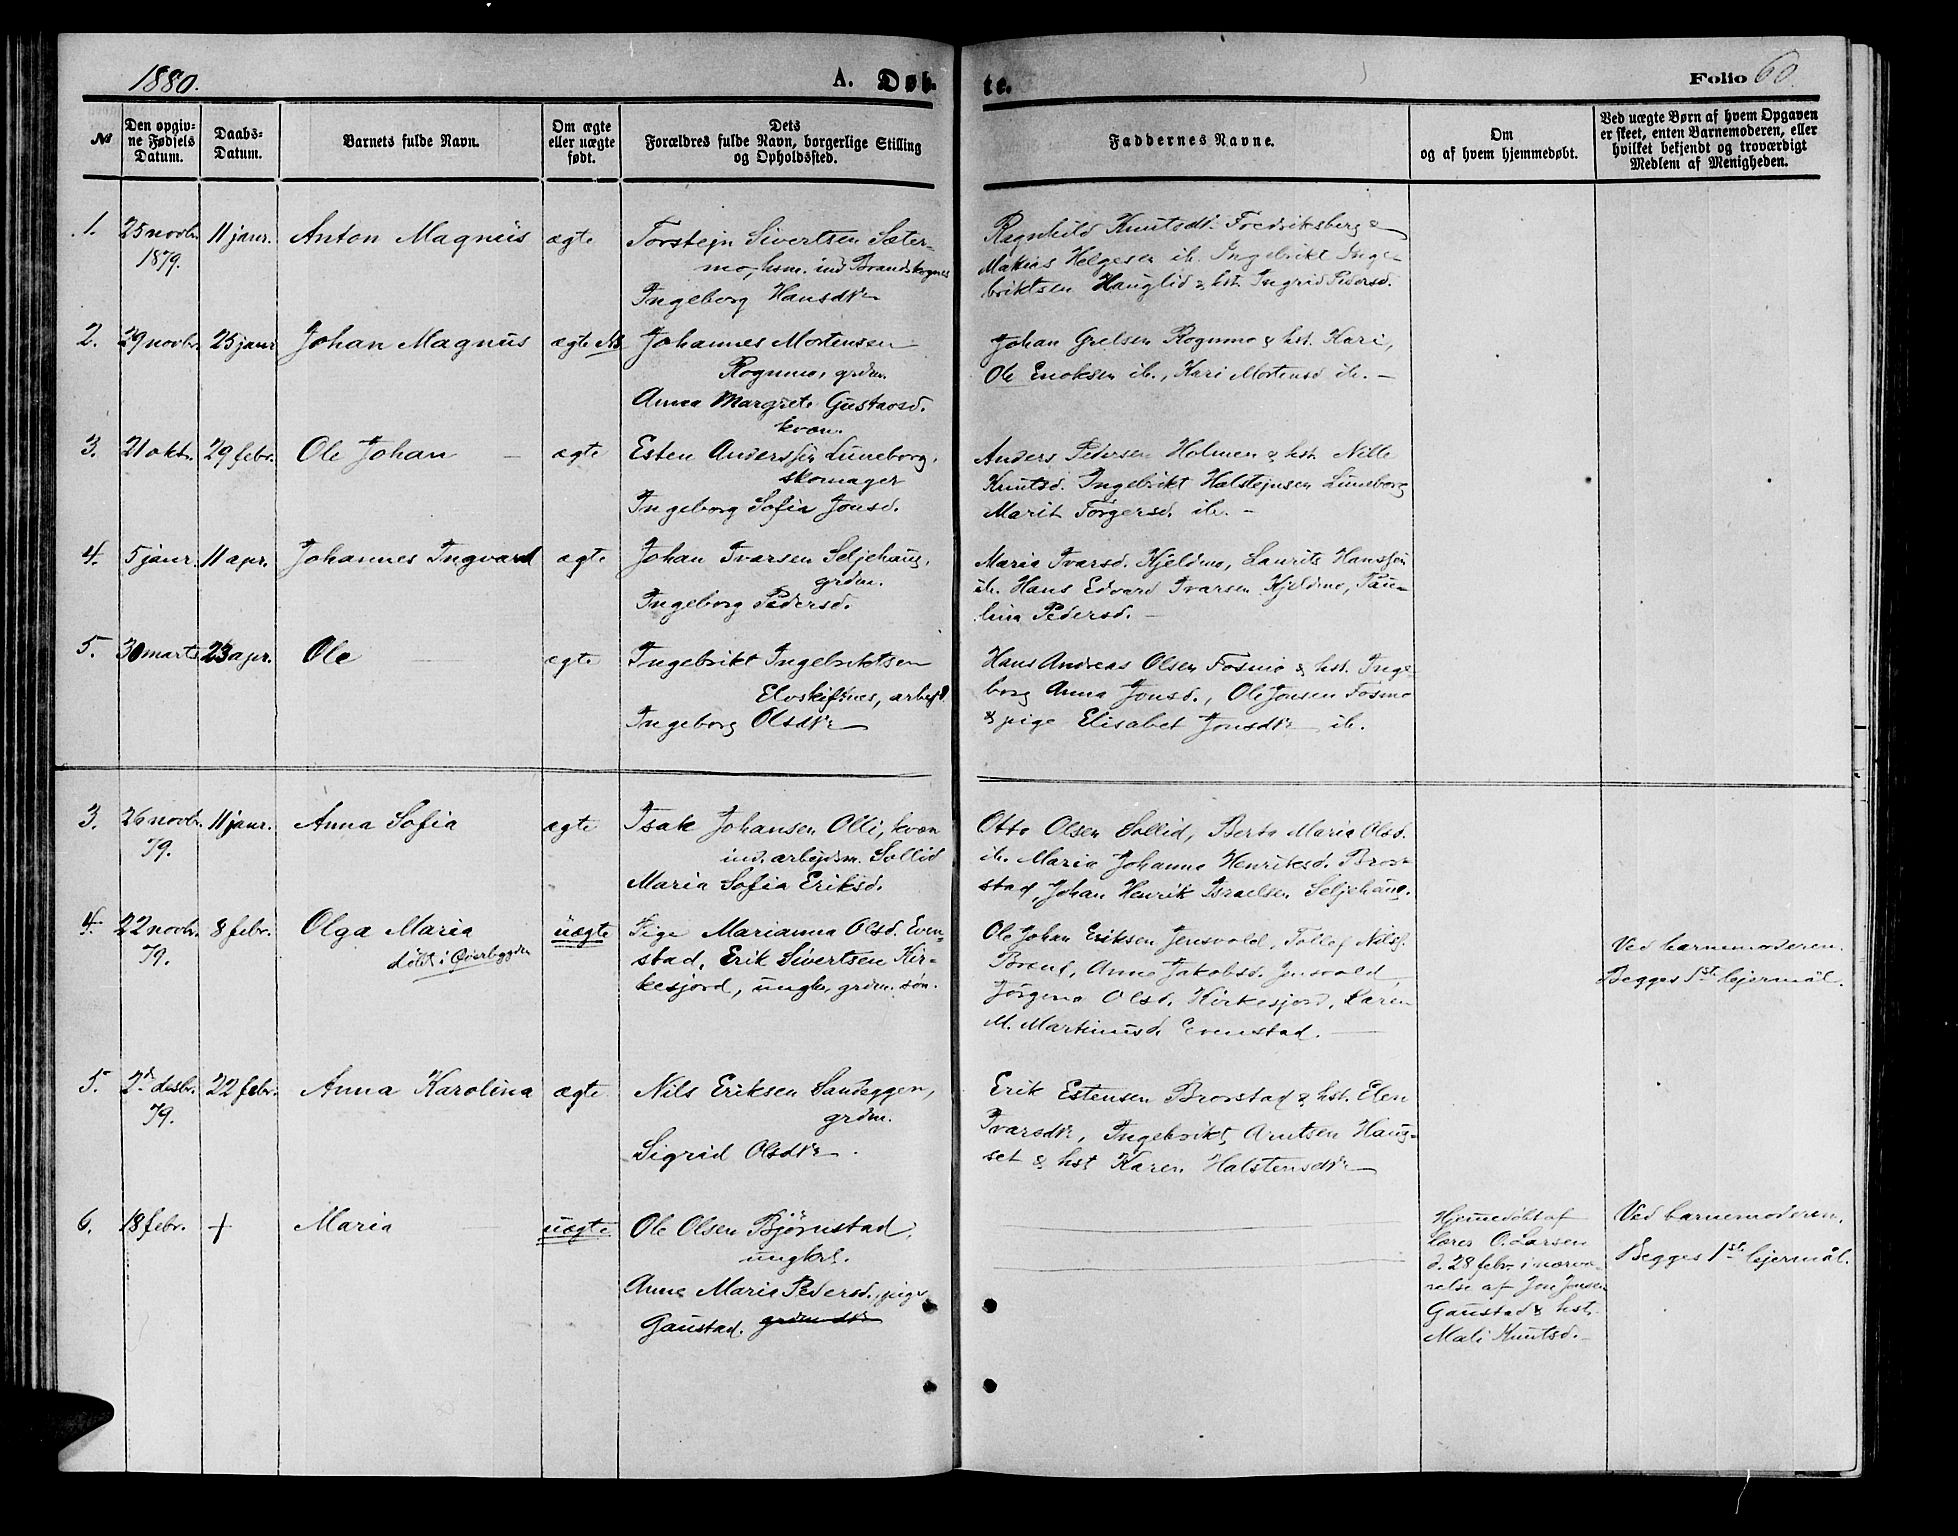 1880.
A. Døb-
te.
Folio 60.
№
Den opgiv-
ne Fødsels
Datum.
Daabs-
Datum.
Barnets fulde Navn.
Om ægte
eller uægte
født.
Dets
Forældres fulde Navn, borgerlige Stilling
og Opholdssted.
Faddernes Navne.
Om
og af hvem hjemmedøbt.
Ved uægte Børn af hvem Opgaven
er skeet, enten Barnemoderen, eller
hvilket bekjendt og troværdigt
Medlem af Menigheden.
1. 25 novbr. 11 janr. Anton Magnus ægte Torstejn Sivertsen Sæter-
1879.
mo, hsm. ind. Brandskognes
Ingeborg Hansdtr
Ragnhild Knutsdtr Fredriksberg &
Matias Helgesen ib. Ingebrikt Inge-
briktsen Hauglid & hst. Ingrid Pedersd.
2. 29 novbr. 25 janr Johan Magnus ægte NB. Johannes Mortensen
Rognmo, grdm.
Anna Margrete Gustavsd.
kvæn.
Johan Grelsen Rognmo & hst. Kari,
Ole Enoksen ib., Kari Mortensd ib. —
3. 21 okt. 29 febr. Ole Johan — ægte Esten Anderssen Luneborg,
skomager
Ingeborg Sofia Jonsd.
Anders Pedersen Holmen & hst. Nille
Knutsd. Ingebrikt Halstejnsen Luneborg
Marit Torgersd. ib. —
4. 5 janr. 11 apr. Johannes Ingvard ægte Johan Ivarsen Seljehaug,
grdm.
Ingeborg Pedersd.
Maria Ivarsd. Kjeldmo, Laurits Hanssen
ib. Hans Edvard Ivarsen Kjeldmo, Pau-
lina Pedersd. —
5. 30 marts 23 apr. Ole — ægte Ingebrikt Ingebriktsen
Elvskiftnes, arbejd.
Ingeborg Olsdtr
Hans Andreas Olsen Fosmo & hst. Inge-
borg Anna Jonsd., Ole Jonsen Fosmo
& pige Elisabet Jonsdtr ib.
3. 26 novbr. 11 janr. Anna Sofia ægte Isak Johansen Olli, kvæn
79.
ind. arbejdsm. Sollid
Maria Sofia Eriksd.
Otto Olsen Sollid, Berta Maria Olsd.
ib. Maria Johanna Henriksd. Brov-
stad, Johan Henrik Israelsen Seljehaug.
4. 22 novbr. 8 febr. Olga Maria uægte Pige Marianna Olsd. Even-
79.
døbt i Øverbygden
stad, Erik Sivertsen Kir-
kesjord, ungk., grdm. søn.
Ole Johan Eriksen Jensvold, Tollef Nilss.
Brend, Anne Jakobsd. Jensvold
Jørgena Olsd. Kirkesjord, Karen
M. Martinusd. Evenstad. —
Ved barnemoderen.
Begges 1st. lejermål.
5. 2d desbr. 22 febr. Anna Karolina ægte Nils Eriksen Sandeggen,
79.
grdm.
Sigrid Olsdtr.
Erik Estensen Brovstad & hst. Elen
Ivarsdtr, Ingebrikt Arntsen Haug-
set & hst Karen Halstensdtr
6. 18 febr. + Maria uægte Ole Olsen Bjørnstad,
ungkrl.
Anne Maria Pedersd., pige
Gaustad. grdm dtr
Hjemmedøbt af
lærer O. Larsen
d. 28 febr. i nærvæ-
relse af Jon Jonsen
Gaustad & hst.
Mali Knutsd. —
Ved barnemoderen.
Begges 1st. lejermål.